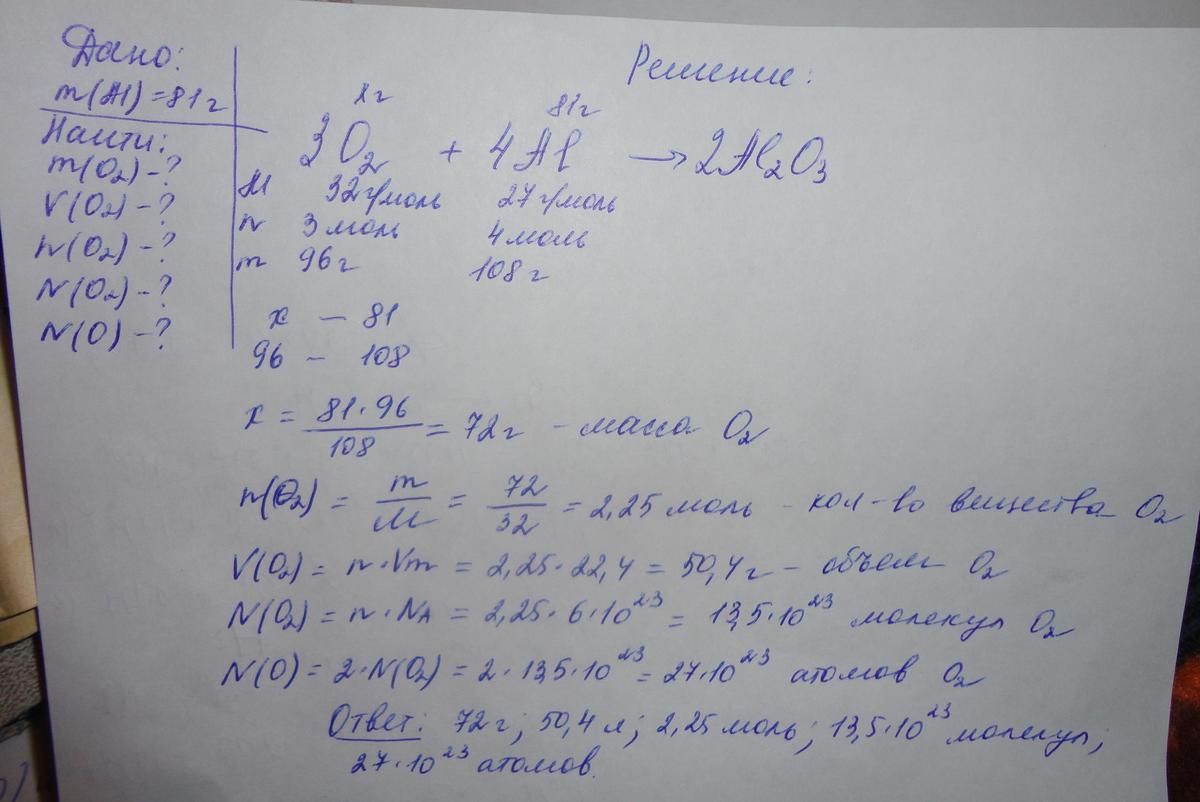 Дано:
m(Al) = 81 г
Найти:
m(O₂) – ?
V(O₂) – ?
n(O₂) – ?
N(O₂) – ?
N(O) – ?
Решение:
xг 81г
3O₂ + 4Al → 2Al₂O₃
M 32 г/моль 27 г/моль
n 3 моль 4 моль
m 96 г 108 г
x – 81
96 – 108
x = 81·96/108 = 72 г – масса O₂
n(O₂) = m/M = 72/32 = 2,25 моль – кол-во вещества O₂
V(O₂) = n·Vm = 2,25·22,4 = 50,4 г – объем O₂
N(O₂) = n·Nᴀ = 2,25·6·10²³ = 13,5·10²³ молекул O₂
N(O) = 2·N(O₂) = 2·13,5·10²³ = 27·10²³ атомов O₂
Ответ: 72 г; 50,4 л; 2,25 моль; 13,5·10²³ молекул;
27·10²³ атомов.